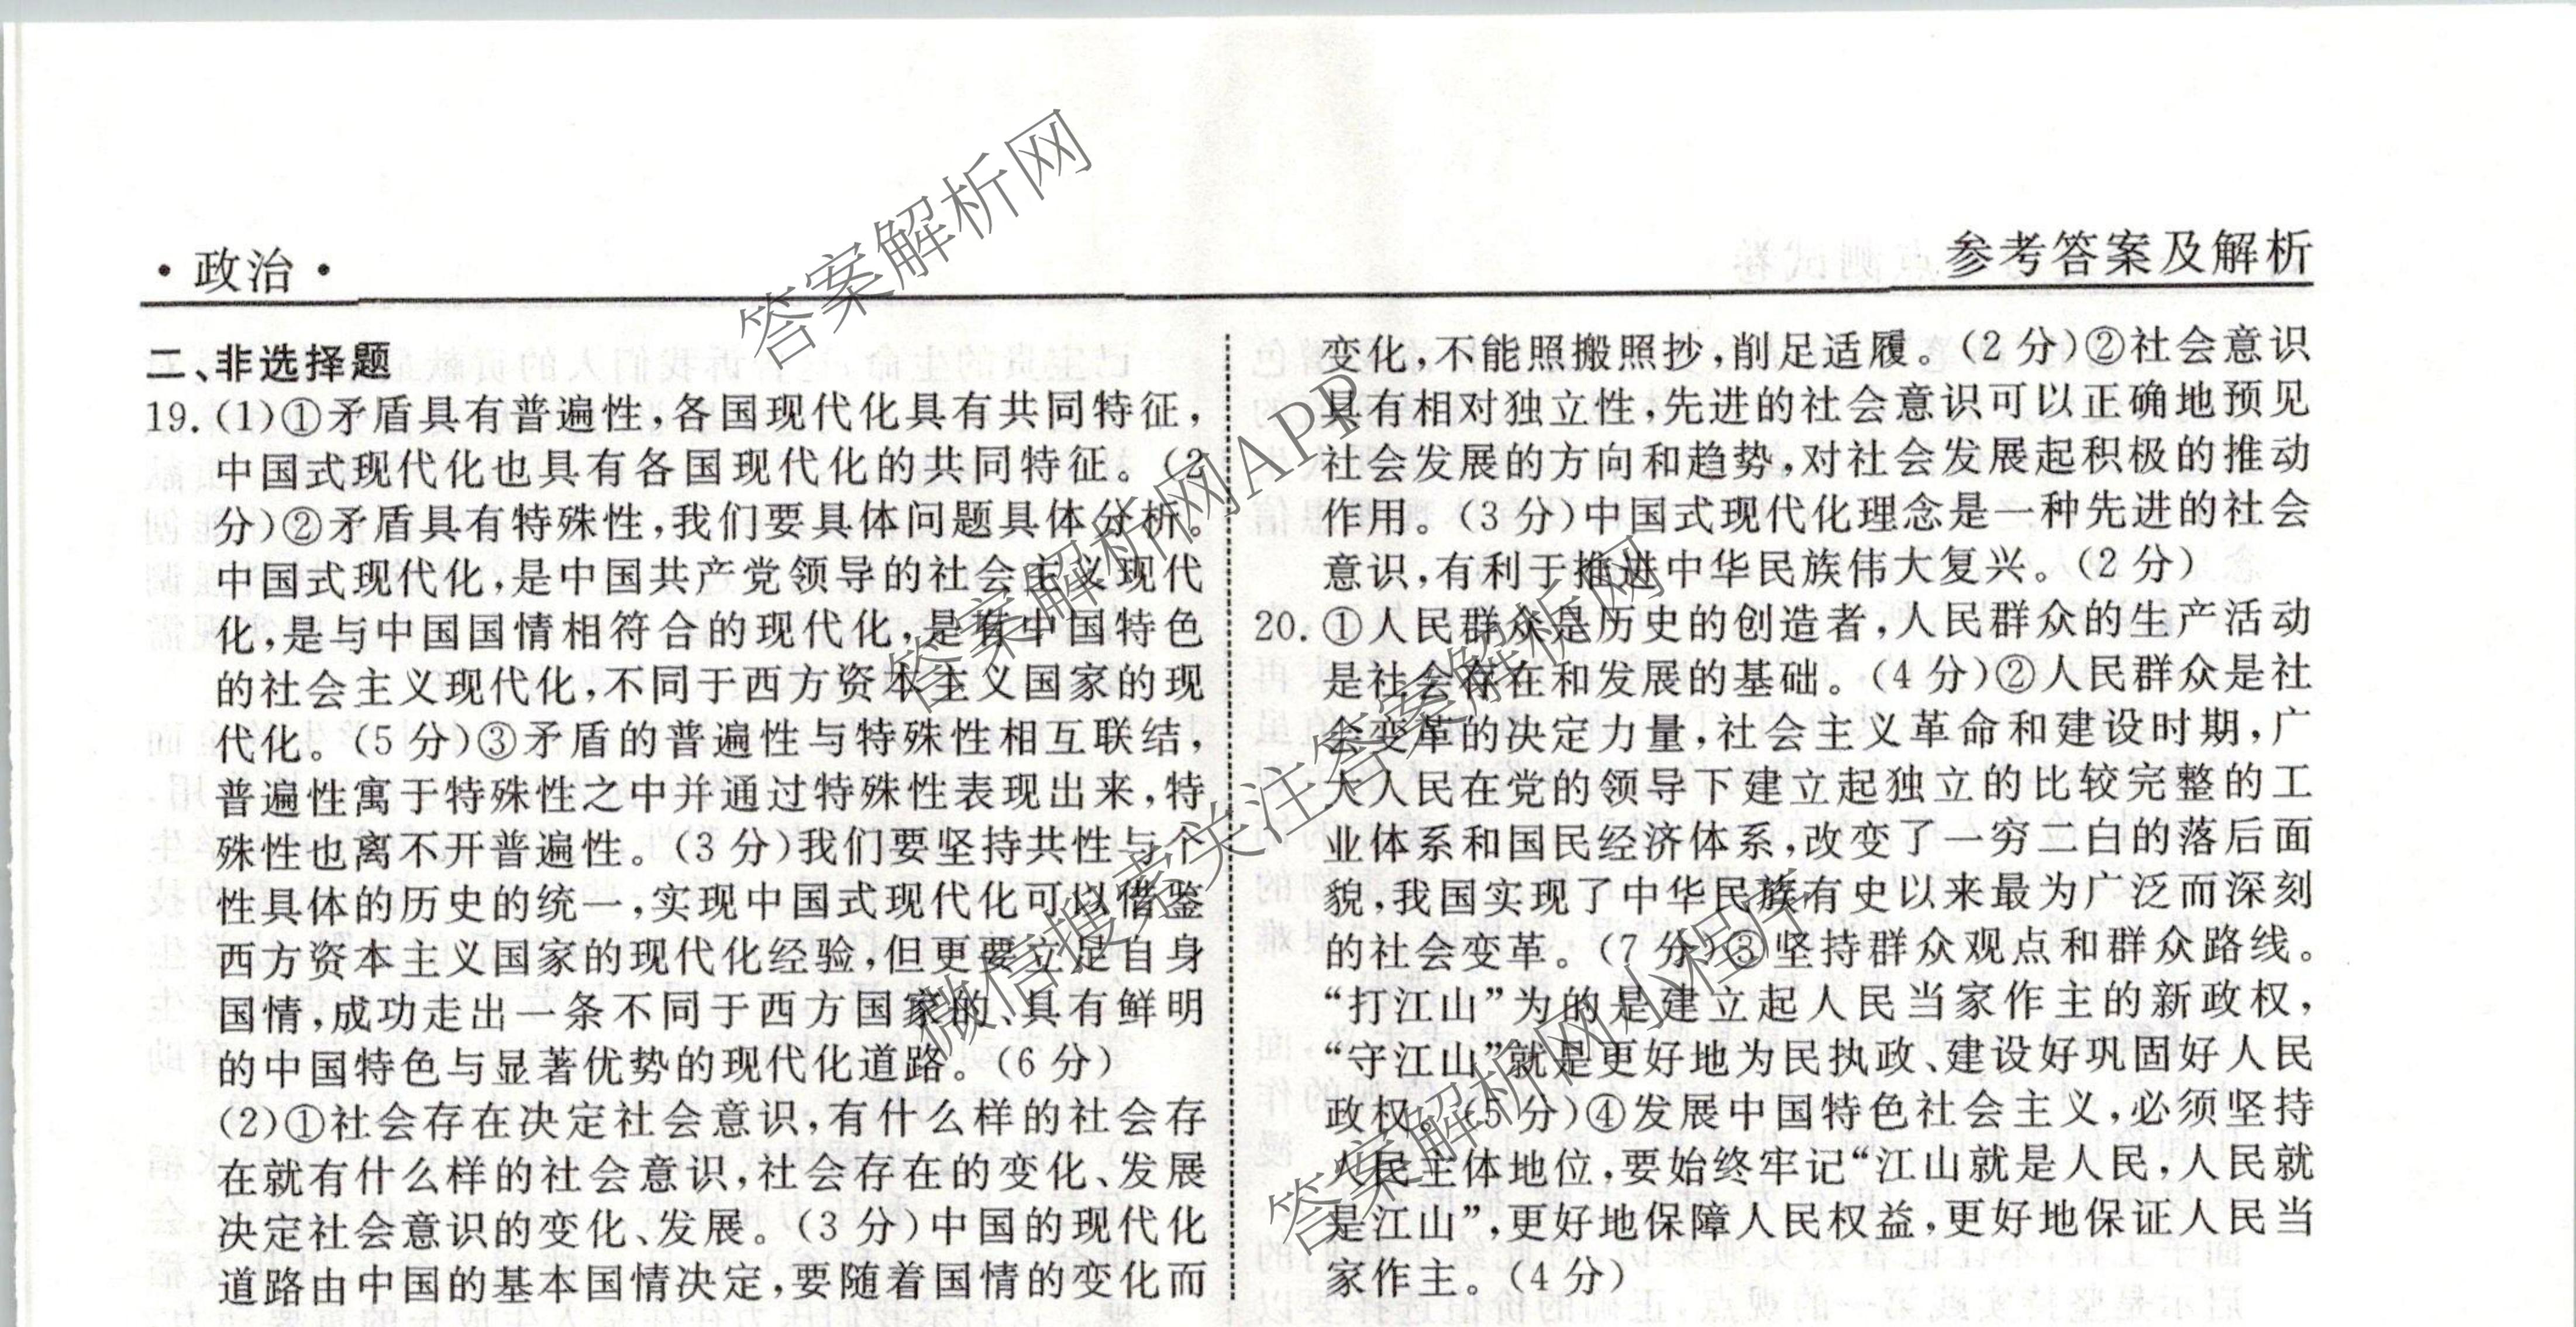 ·政治·
参考答案及解析
二、非选择题
19.(1)①矛盾具有普遍性,各国现代化具有共同特征,
中国式现代化也具有各国现代化的共同特征。(2
分)②矛盾具有特殊性,我们要具体问题具体分析。
中国式现代化,是中国共产党领导的社会主义现代
化,是与中国国情相符合的现代化,是有中国特色
的社会主义现代化,不同于西方资本主义国家的现
代化。(5分)③矛盾的普遍性与特殊性相互联结,
普遍性寓于特殊性之中并通过特殊性表现出来,特
殊性也离不开普遍性。(3分)我们要坚持共性与个
性具体的历史的统一,实现中国式现代化可以借鉴
西方资本主义国家的现代化经验,但更要立足自身
国情,成功走出一条不同于西方国家的、具有鲜明
的中国特色与显著优势的现代化道路。(6分)
(2)①社会存在决定社会意识,有什么样的社会存
在就有什么样的社会意识,社会存在的变化、发展
决定社会意识的变化、发展。(3分)中国的现代化
道路由中国的基本国情决定,要随着国情的变化而
变化,不能照搬照抄,削足适履。(2分)②社会意识
具有相对独立性,先进的社会意识可以正确地预见
社会发展的方向和趋势,对社会发展起积极的推动
作用。(3分)中国式现代化理念是一种先进的社会
意识,有利于推进中华民族伟大复兴。(2分)
20.①人民群众是历史的创造者,人民群众的生产活动
是社会存在和发展的基础。(4分)②人民群众是社
会变革的决定力量,社会主义革命和建设时期,广
大人民在党的领导下建立起独立的比较完整的工
业体系和国民经济体系,改变了一穷二白的落后面
貌,我国实现了中华民族有史以来最为广泛而深刻
的社会变革。(7分)③坚持群众观点和群众路线。
“打江山”为的是建立起人民当家作主的新政权,
“守江山”就是更好地为民执政、建设好巩固好人民
政权。(5分)④发展中国特色社会主义,必须坚持
人民主体地位,要始终牢记“江山就是人民,人民就
是江山”,更好地保障人民权益,更好地保证人民当
家作主。(4分)
答案解析网
答案解析网APP
微信搜索关注答案解析网
答案解析网小程序